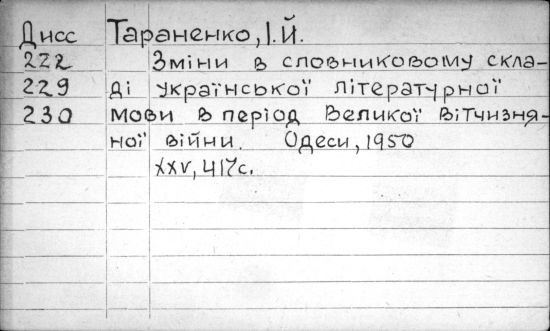 Дисс Тараненко, І.Й.
222 Зміни в словниковому скла-
229 ді української літературної
230 мови в період Великої Вітчизня-
ної війни. Одеси, 1950
XXV, 417с.